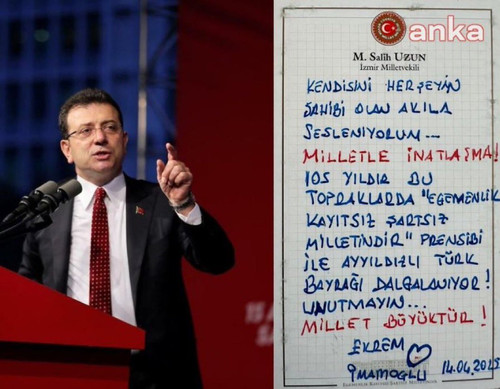 anka
M. Salih UZUN
İzmir Milletvekili
KENDİSİNİ HERŞEYİN
SAHİBİ OLAN AKILA
SESLENİYORUM...
MİLLETLE İNATLAŞMA!
105 YILDIR BU
TOPRAKLARDA "EGEMENLİK
KAYITSIZ ŞARTSIZ
MİLLETİNDİR" PRENSİBİ
İLE AYYILDIZLI TÜRK
BAYRAĞI DALGALANIYOR!
UNUTMAYIN...
MİLLET BÜYÜKTÜR!
EKREM
İMAMOĞLU 14.04.2025